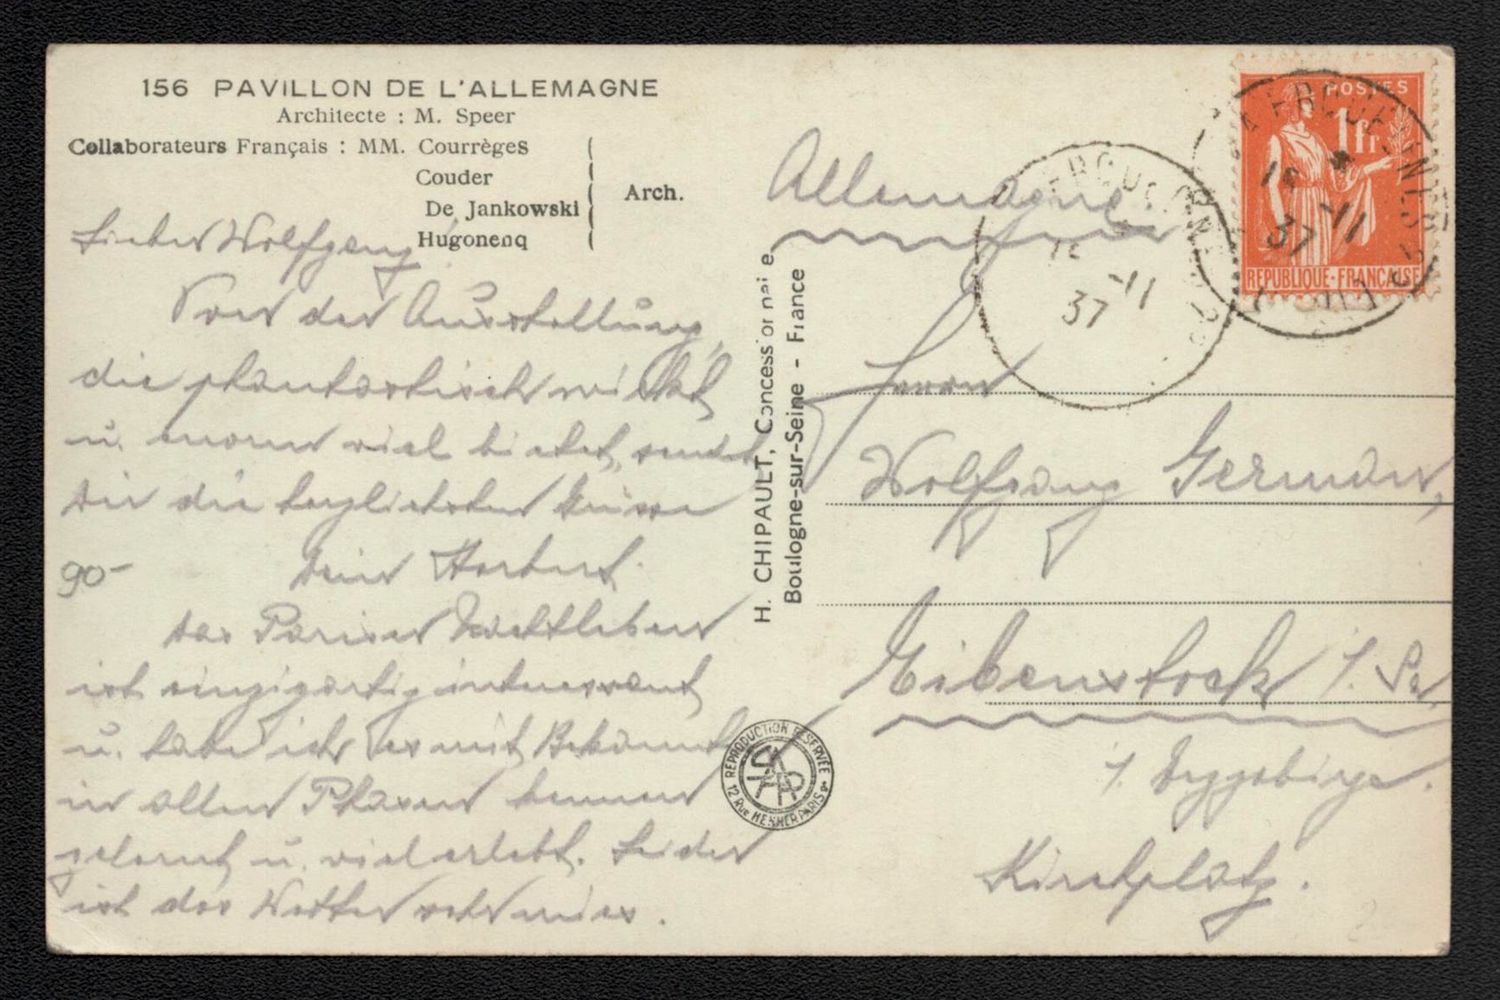 156 PAVILLON DE L'ALLEMAGNE
Architecte : M. Speer
Collaborateurs Français : MM. Courrèges
Couder
De Jankowski
Hugonenq
Arch.
Lieber Wolfgang!
Von der Ausstellung,
die phantastisch wirkt
u. enorm viel bietet, sendet
Dir die herzlichsten Grüsse
Dein Herbert.
90-
Das Pariser Nachtleben
ist einzigartig interessant
u. habe ich es mit Bekannten
in allen Phasen kennen
gelernt u. viel erlebt. Leider
ist das Wetter sehr mies.
H. CHIPAULT, Concessionnaire
Boulogne-sur-Seine - France
REPRODUCTION RÉSERVÉE
12 Rue HESNER PARIS
POSTES
1fr
RÉPUBLIQUE-FRANÇAISE
-11
37
-11
37
Allemagne
Herrn
Wolfgang German,
Eibenstock i. Sa.
i. Erzgebirge.
Kirchplatz.